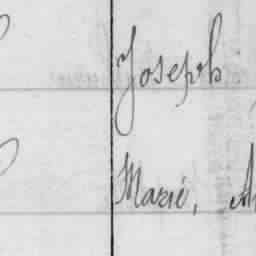 Joseph
Marie,